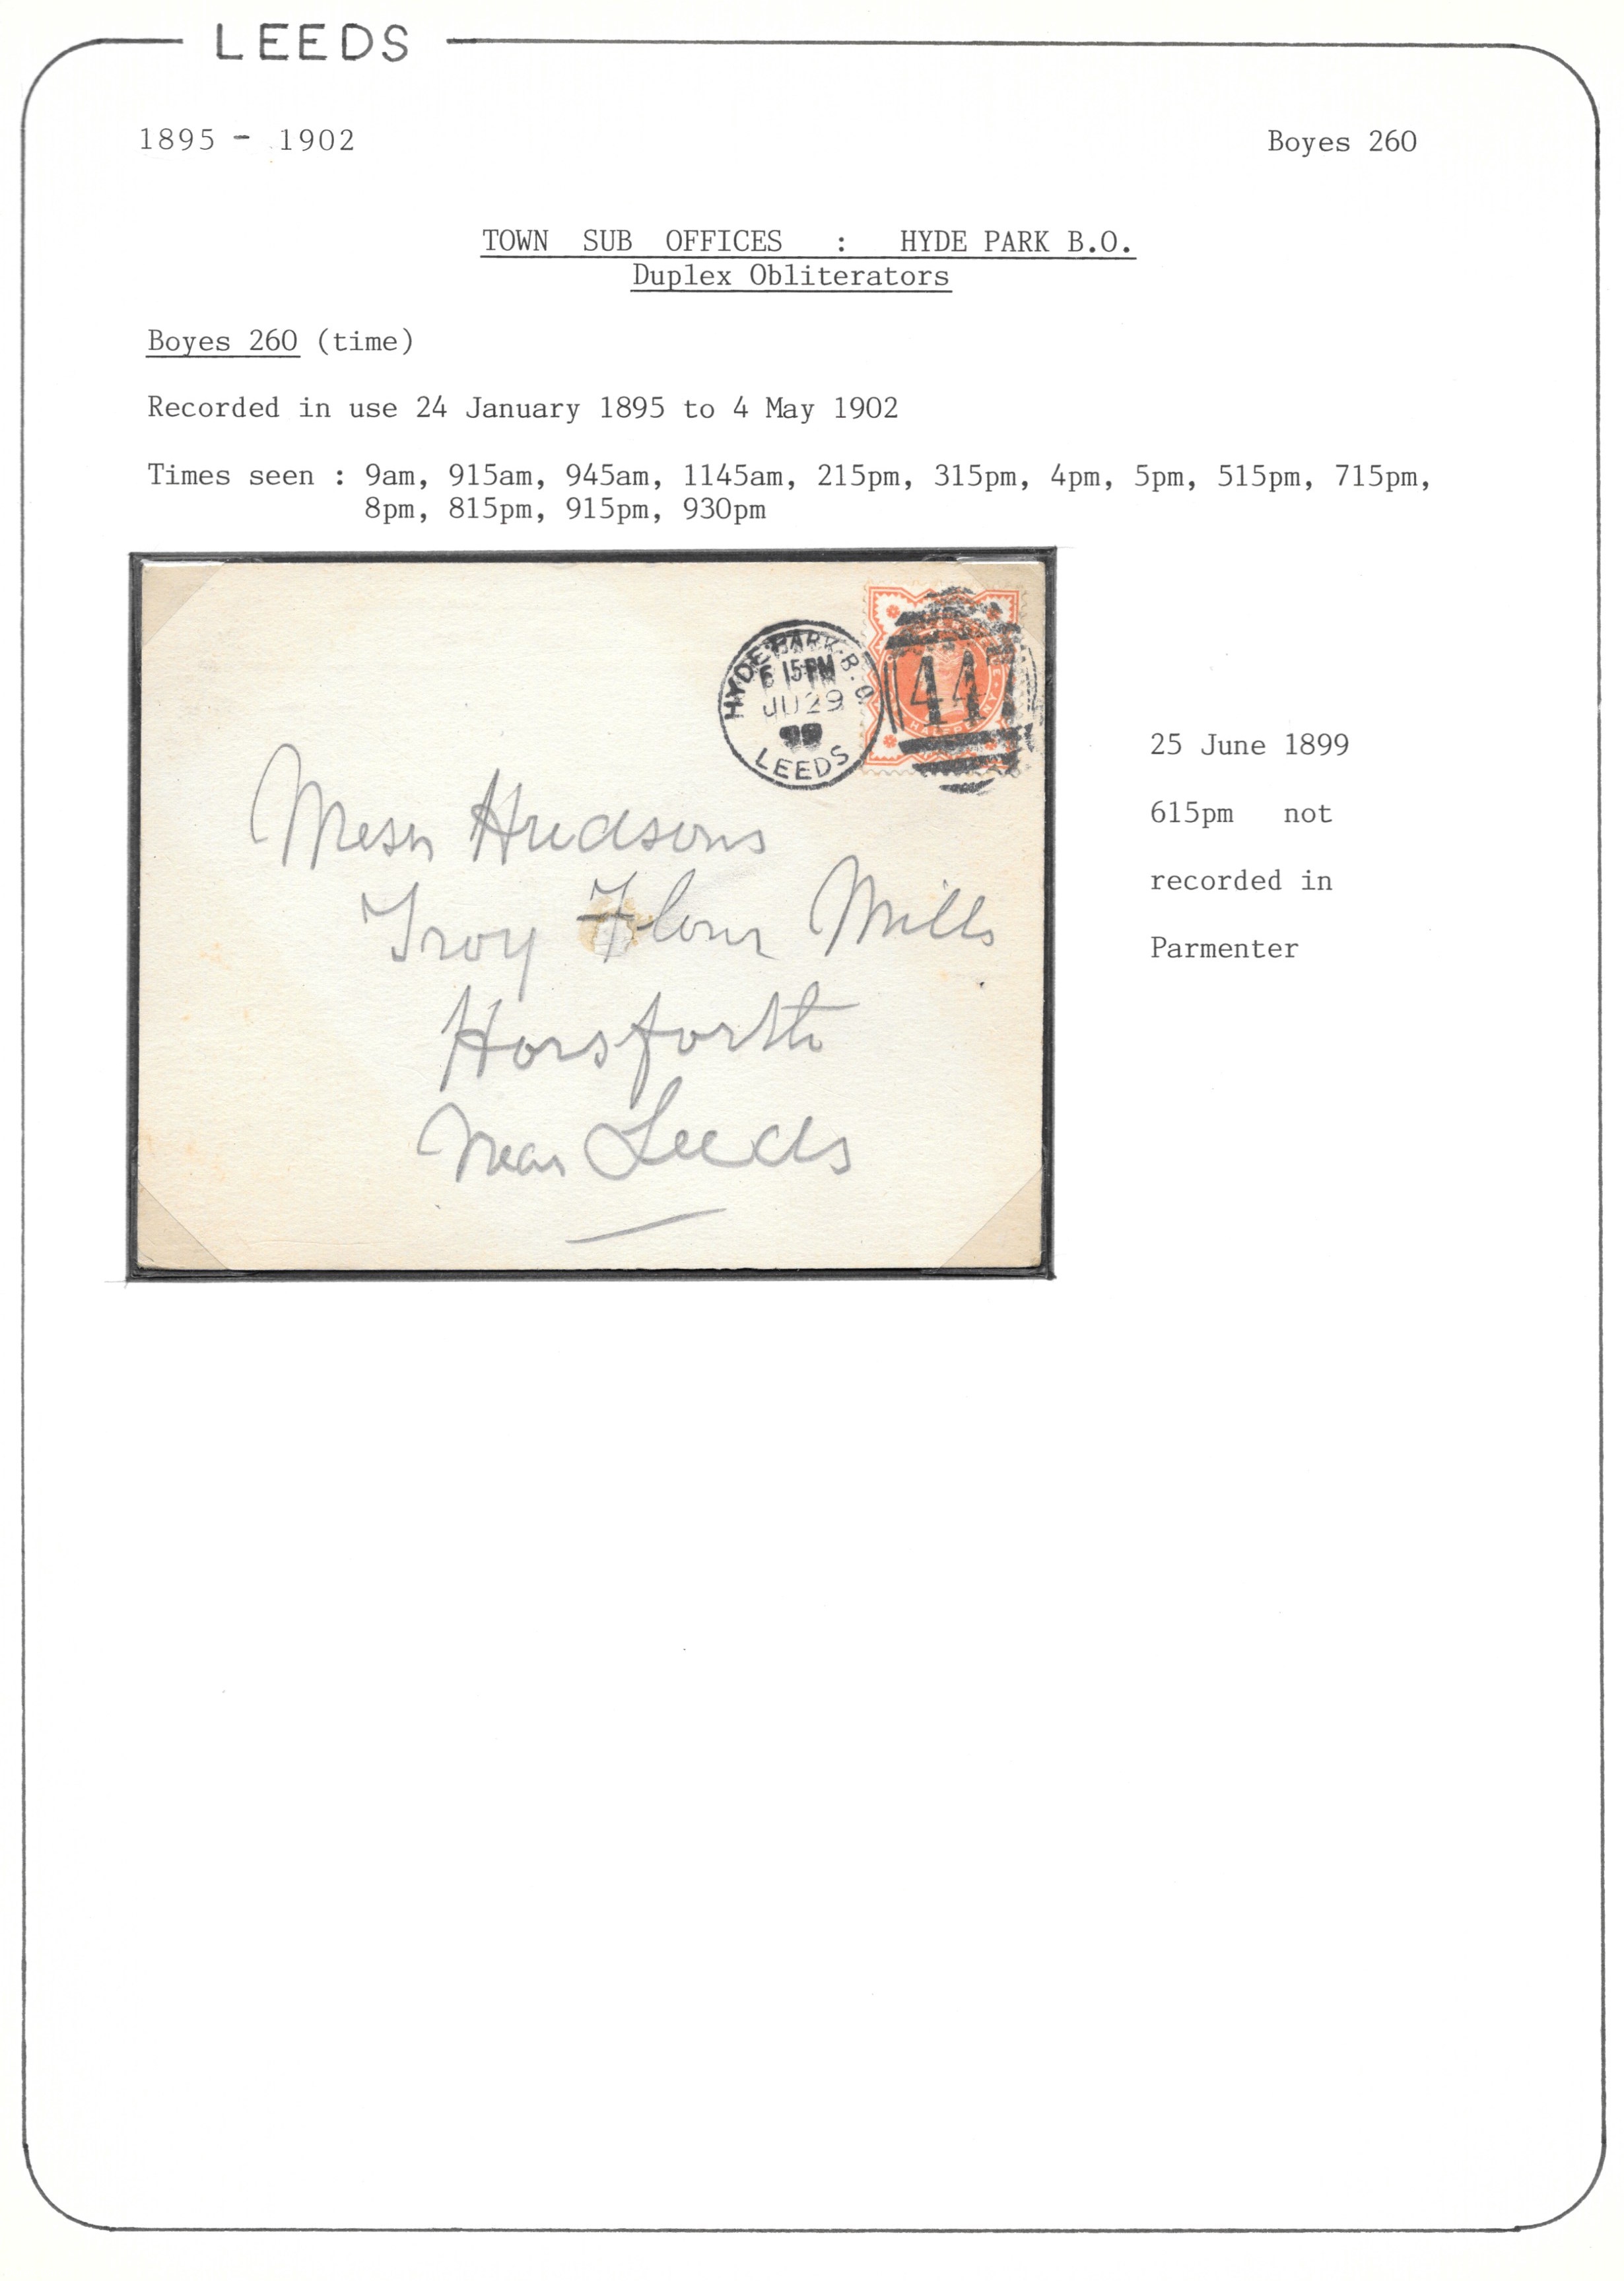 LEEDS
1895 - 1902
Boyes 260
TOWN SUB OFFICES : HYDE PARK B.O.
Duplex Obliterators
Boyes 260 (time)
Recorded in use 24 January 1895 to 4 May 1902
Times seen : 9am, 915am, 945am, 1145am, 215pm, 315pm, 4pm, 5pm, 515pm, 715pm,
8pm, 815pm, 915pm, 930pm
HYDE PARK. B. O
6 15 PM
JU 29
99
LEEDS
447
25 June 1899
615pm not
recorded in
Parmenter
Messrs Hudsons
Troy Flour Mills
Horsforth
Near Leeds